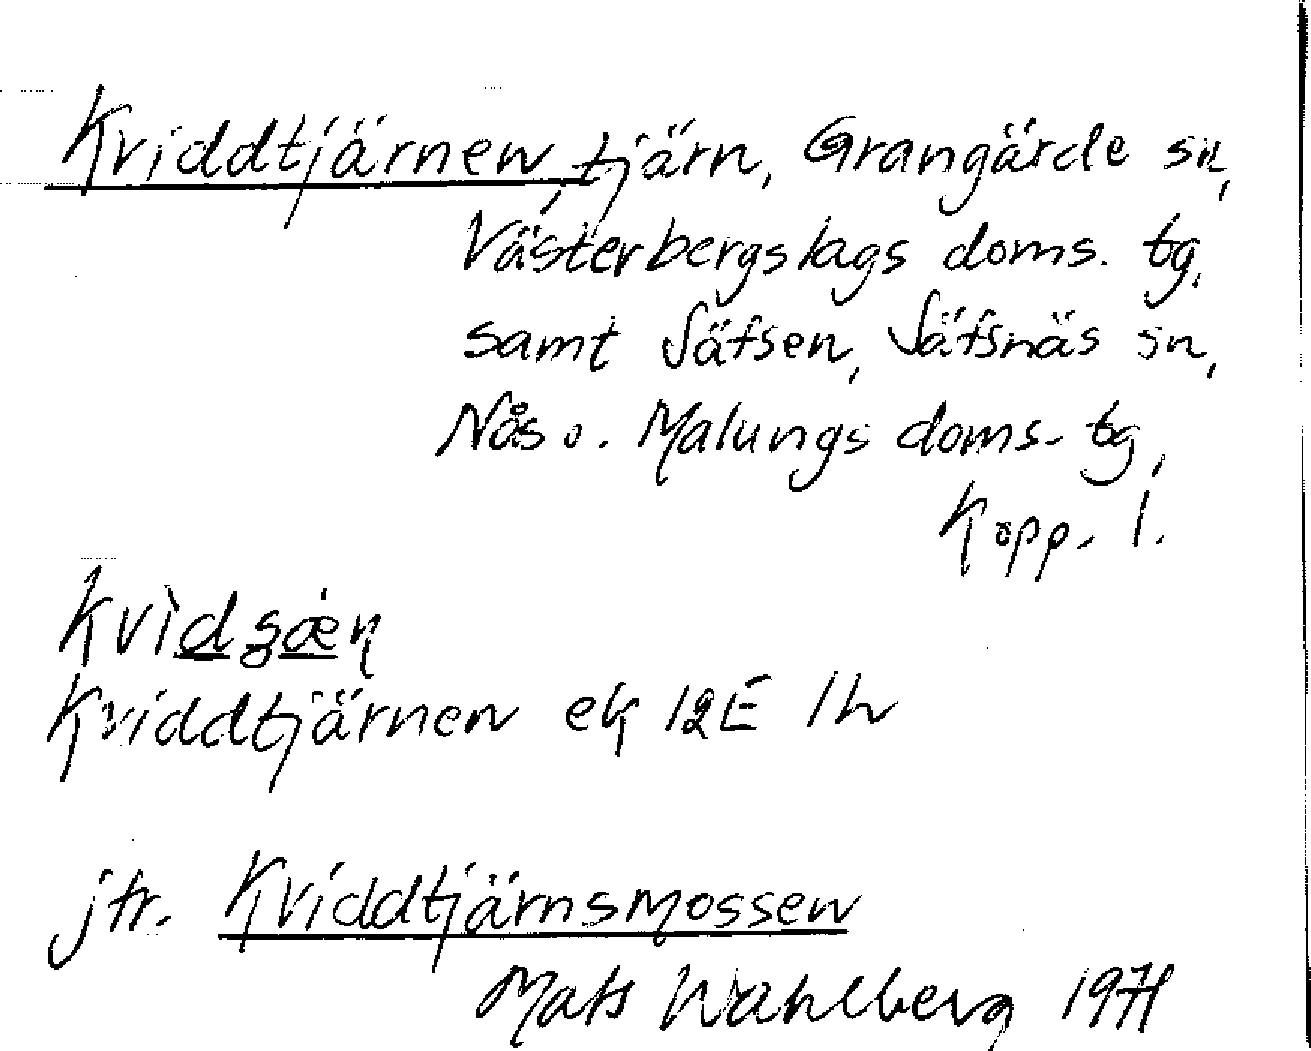 Kviddtjärnen, tjärn, Grangärde sn,
Västerbergslags doms. tg,
samt Säfsen, Säfsnäs sn,
Nås o. Malungs doms. tg,
Kopp. l.
Kviddtjärnen ek 12E 1h
jfr. Kviddtjärnsmossen
Mats Wahlberg 1971